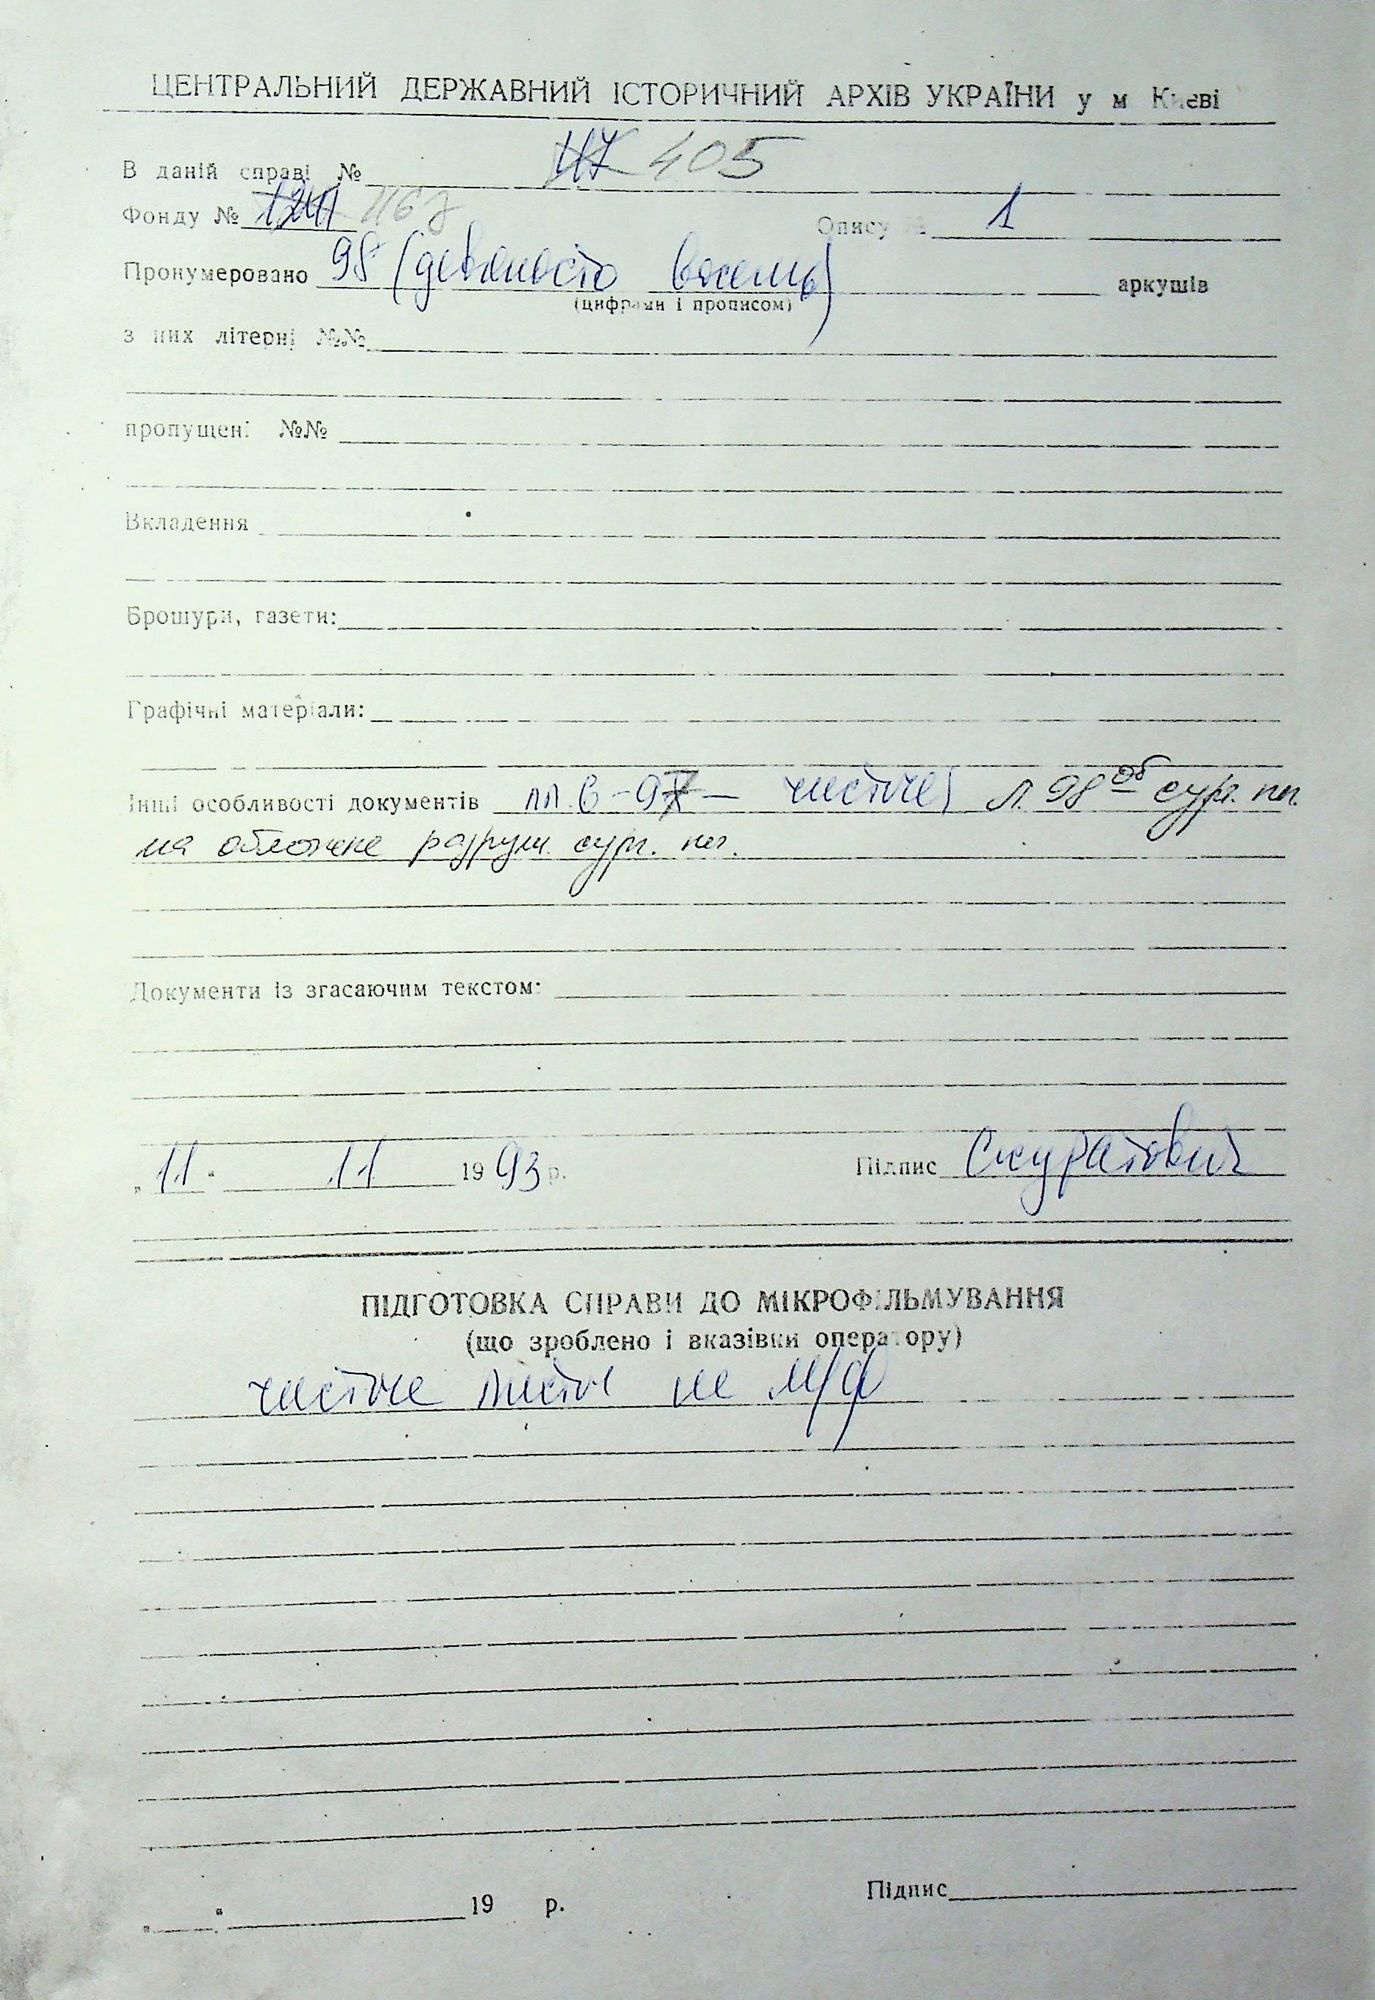 ЦЕНТРАЛЬНИЙ ДЕРЖАВНИЙ ІСТОРИЧНИЙ АРХІВ УКРАЇНИ у м Києві
В даній справі № 117 405
Фонду № 1241 1167 Опису № 1
Пронумеровано 98 (девяносто восемь) аркушів
(цифрами і прописом)
з них літерні №№
пропущені №№
Вкладення
Брошури, газети:
Графічні матеріали:
Інші особливості документів лл. 6-97 – чистые, л. 98 об сург. пп.
на обложке разруш. сург. пп.
Документи із згасаючим текстом:
„11“ 11 1993 р. Підпис Скуратович
ПІДГОТОВКА СПРАВИ ДО МІКРОФІЛЬМУВАННЯ
(що зроблено і вказівки оператору)
чистые листы не м/ф
„ “ 19 р. Підпис